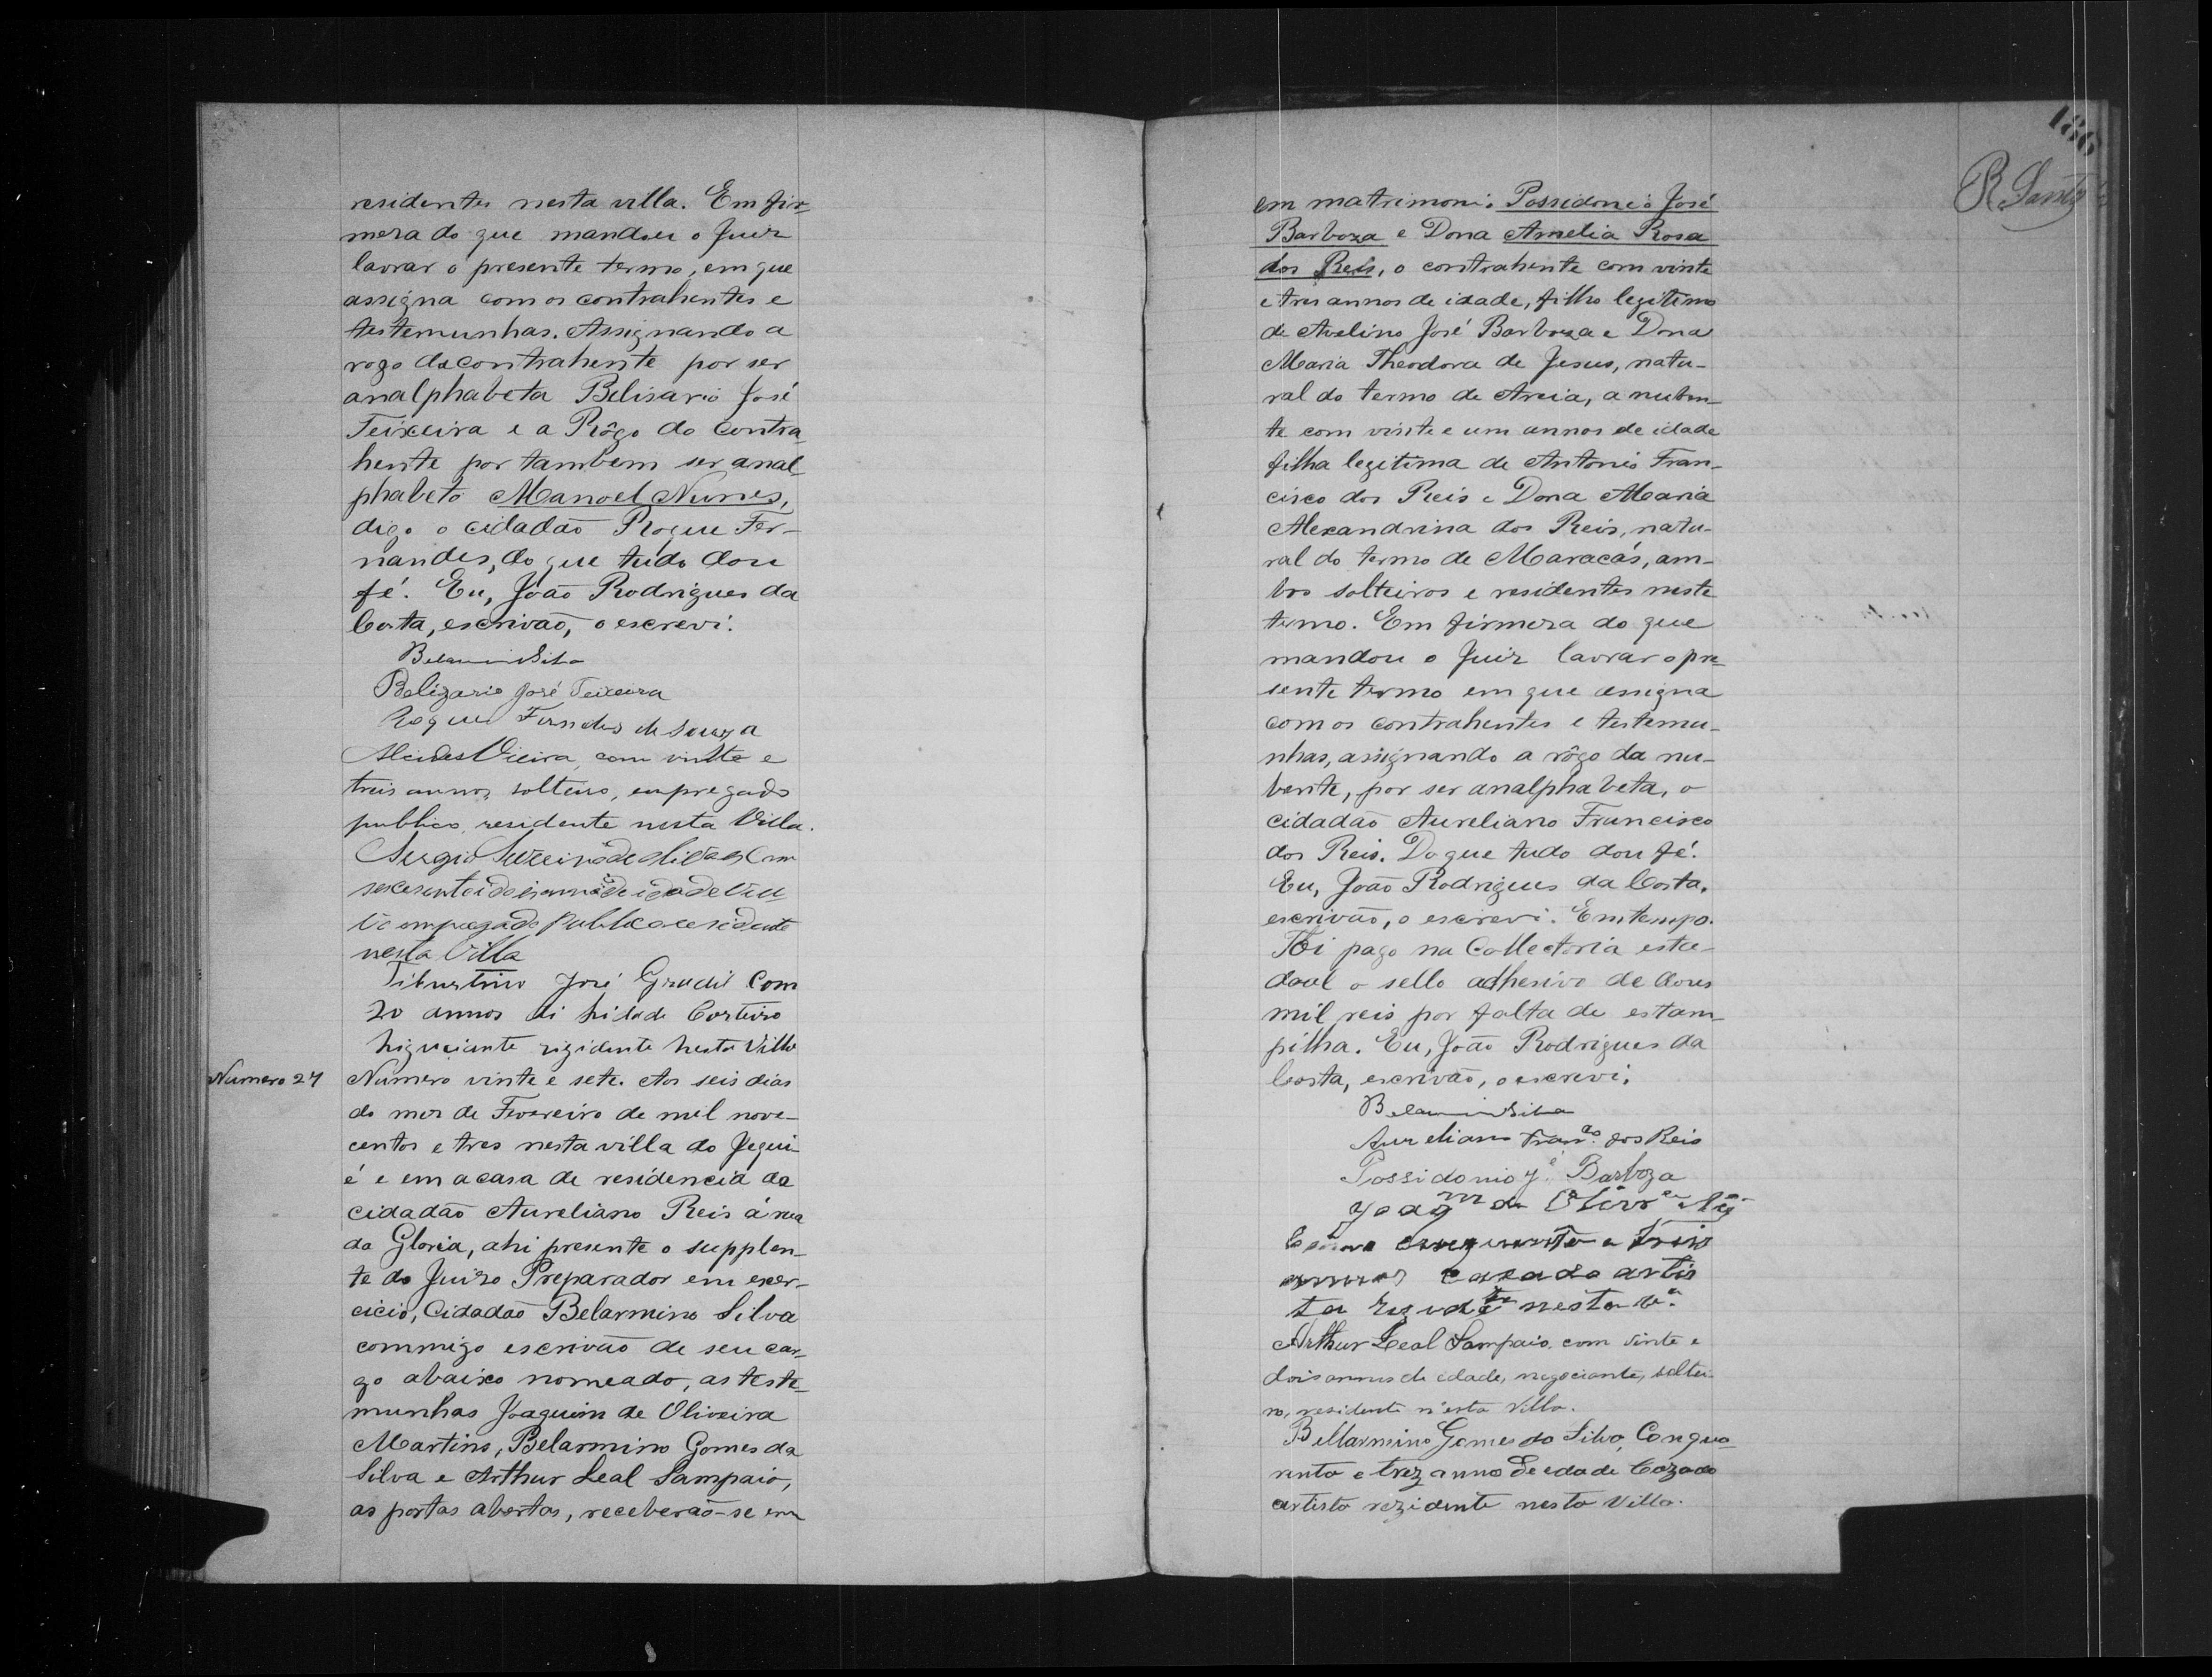 residentes nesta villa. Em fir-
meza do que mandou o Juiz
lavrar o presente termo, em que
assigna com os contrahentes e
testemunhas. Assignando a
rogo da contrahente por ser
analphabeta Belisario José
Teixeira e a Rôgo do contra-
hente por tambem ser anal-
phabeto Manoel Nunes,
digo o cidadão Roque Fer-
nandes, do que tudo dou
fé. Eu, João Rodrigues da
Costa, escrivão, o escrevi.
Belarmino Silva
Belizario José Teixeira
Roque Fernandes de Souza
Alcides Vieira, com vinte e
treis annos, solteiro, empregado
publico, residente nesta Villa.
Sergio de Com
sescenta i dois annos de idade Viu
vo empregado Publico residente
nesta Villa
Tiburtino José Gradil Com
20 annos di hidade Corteiro
higuciante rizidente nesta Villa
Numero 27
Numero vinte e sete. Aos seis dias
do mez de Fevereiro de mil nove-
centos e tres nesta villa do Jequi-
é e em a casa de residencia do
cidadão Aureliano Reis á rua
da Gloria, ahi presente o supplen-
te do Juizo Preparador em exer-
cicio, Cidadão Belarmino Silva
commigo escrivão de seu car-
go abaixo nomeado, as teste-
munhas Joaquim de Oliveira
Martins, Belarmino Gomes da
Silva e Arthur Leal Sampaio,
as portas abertas, receberão-se em
186
R. Santos
em matrimonio Possidonio José
Barboza e Dona Amelia Rosa
dos Reis, o contrahente com vinte
e tres annos de idade, filho legitimo
de Avelino José Barboza e Dona
Maria Theodora de Jesus, natu-
ral do termo de Areia, a nuben-
te com vinte e um annos de idade
filha legitima de Antonio Fran-
cisco dos Reis e Dona Maria
Alexandrina dos Reis, natu-
ral do termo de Maracás, am-
bos solteiros e residentes neste
termo. Em firmeza do que
mandou o Juiz lavrar o pre-
sente termo em que assigna
com os contrahentes e testemu-
nhas, assignando a rôgo da nu-
bente, por ser analphabeta, o
cidadão Aureliano Francisco
dos Reis. Do que tudo dou fé.
Eu, João Rodrigues da Costa,
escrivão, o escrevi. Em tempo.
Foi pago na Collectoria esta-
doal o sello adhesivo de dous
mil reis por falta de estam-
pilha. Eu, João Rodrigues da
Costa, escrivão, o escrevi.
Belarmino Silva
Aureliano Franco. dos Reis
Possidonio Jé. Barboza
Joaqm de Olivra
cincoenta e treis
annos cazado artis
ta rezidte nesta Va.
Arthur Leal Sampaio, com vinte e
dois annos de edade, negociante, soltei-
ro, residente n'esta Villa.
Bellarmino Gomes da Silva, Con qua
renta e trez anno de edade Cazado
artista rezidente nesta Villa.